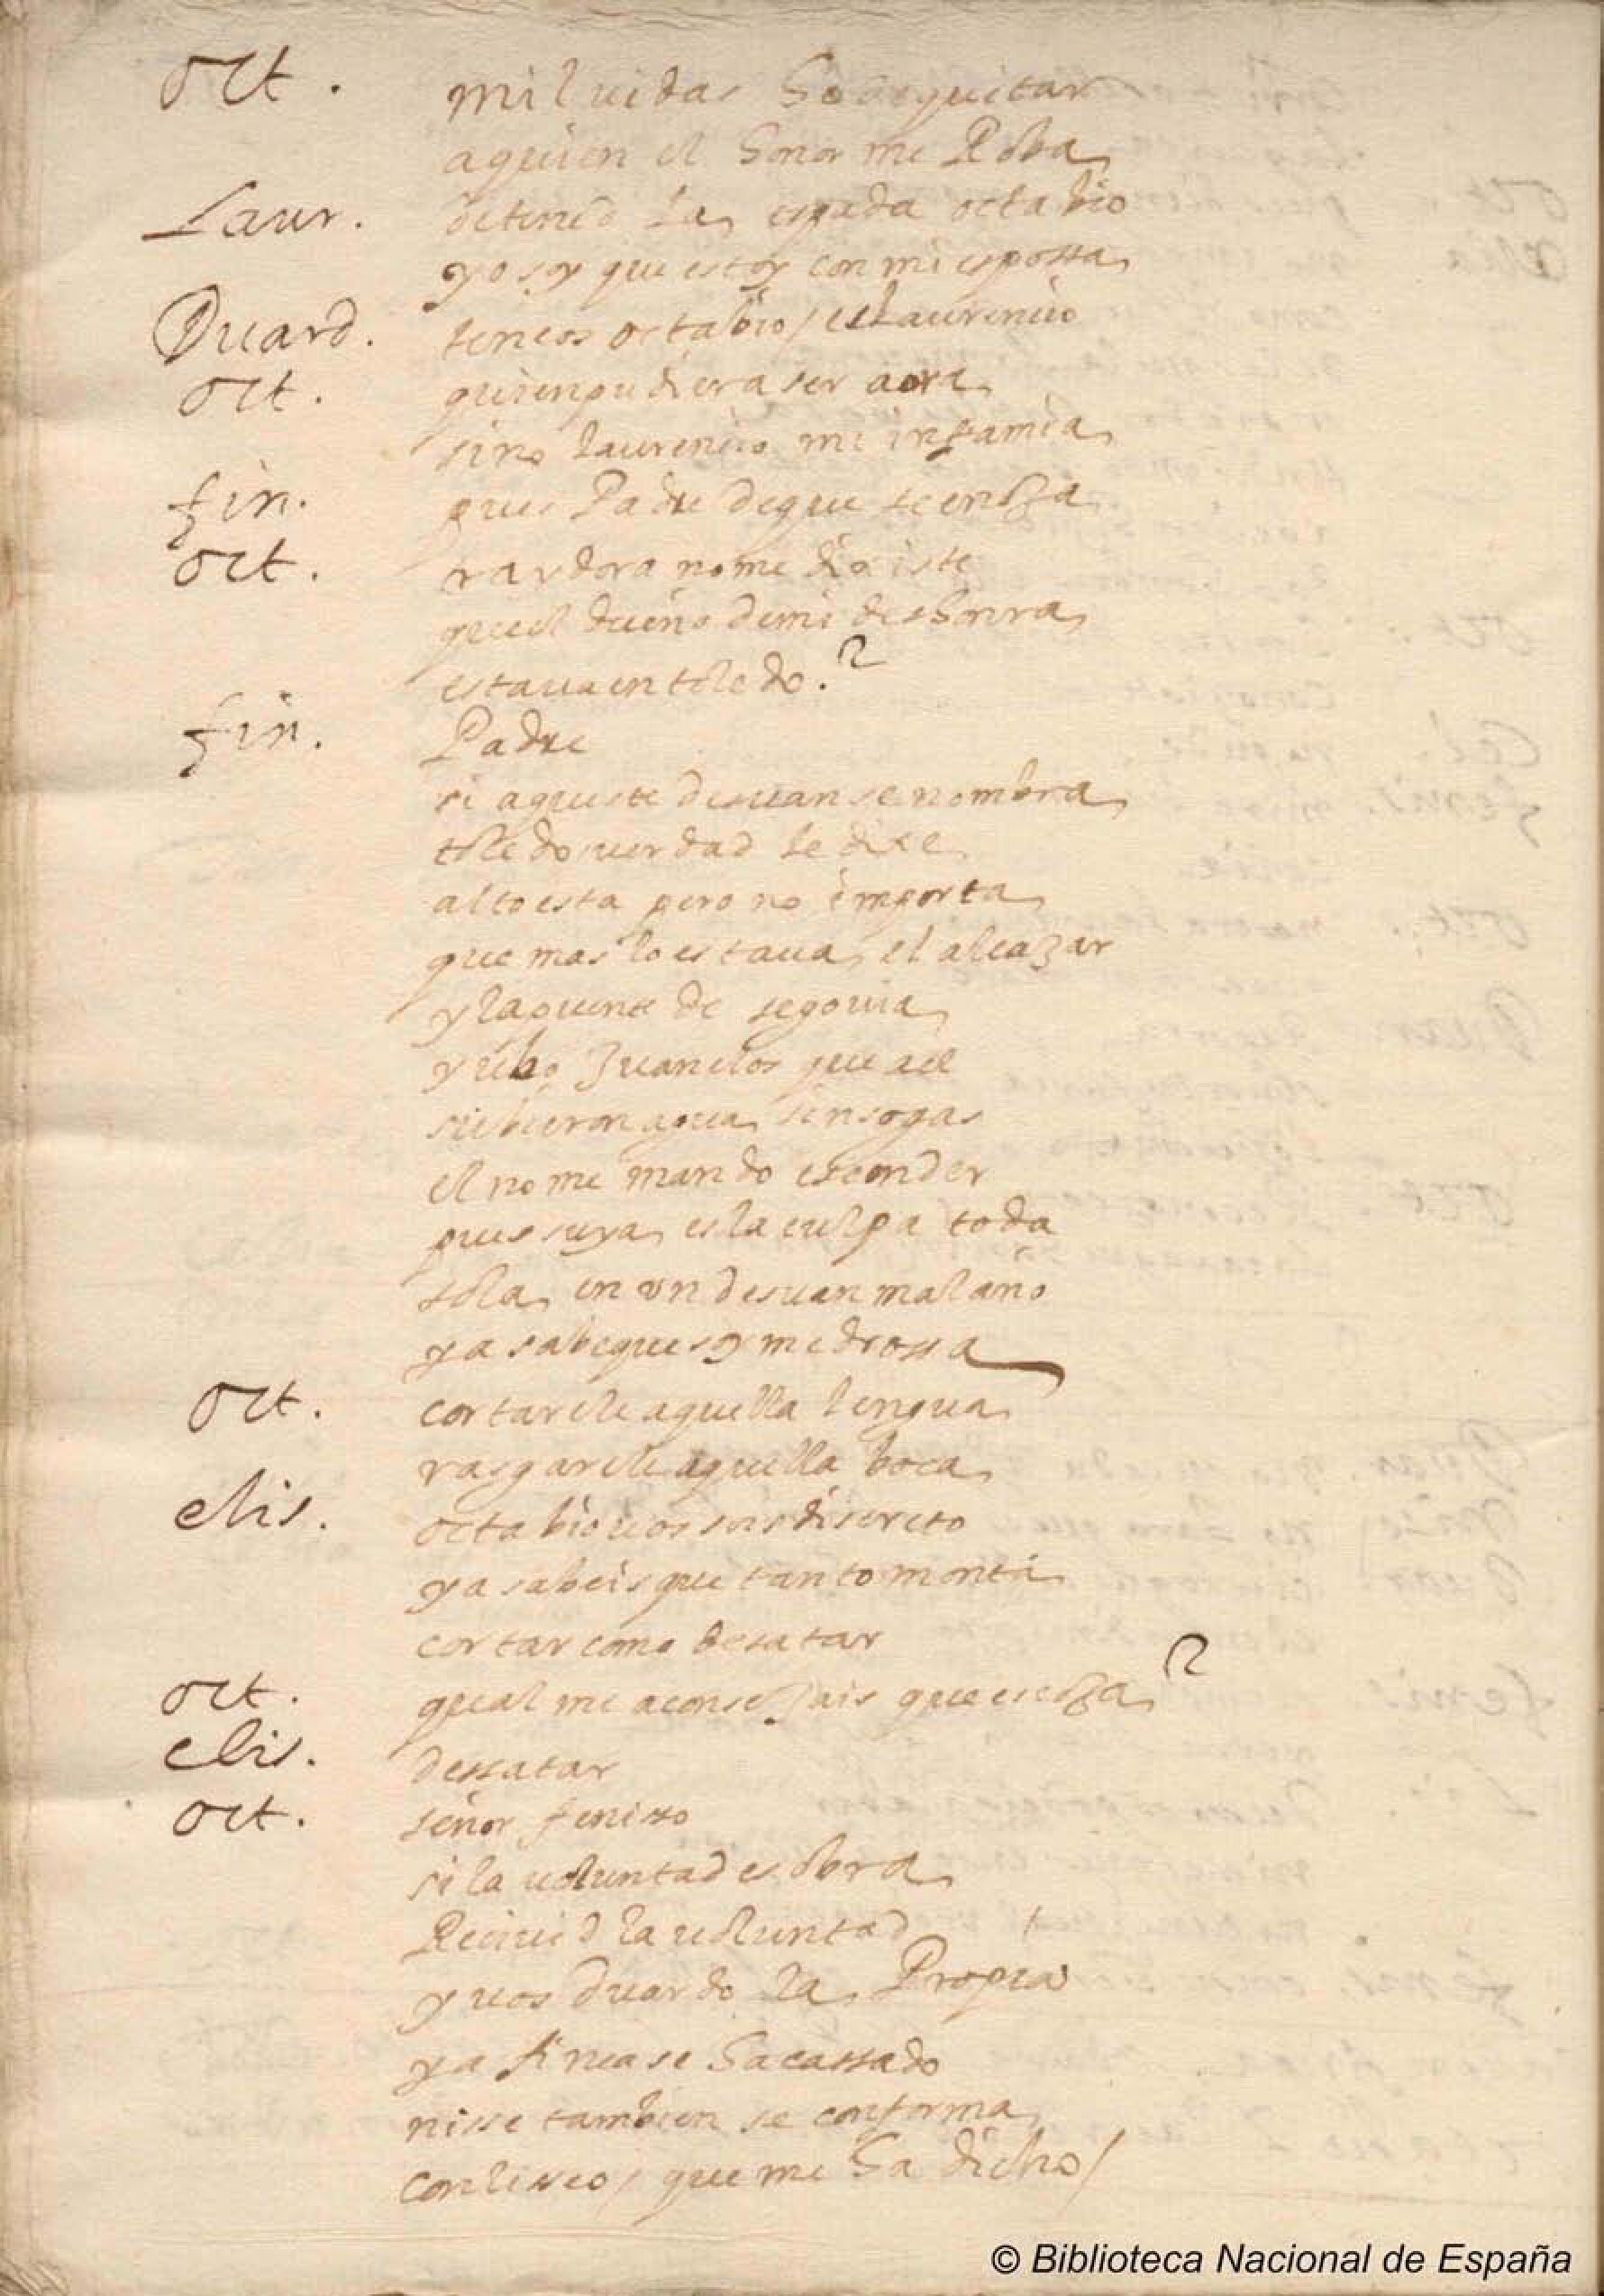 Oct. mil vidas he de quitar
a quien el honor me Roba
Laur. detened la espada octabio
yo soy que estoy con mi espossa
Duard. teneos octabio / es laurencio
Oct. quien pudiera ser aora
sino laurencio mi infamia
fin. pues Padre de que se enoja
Oct. traydora no me dixiste
que el dueño de mi deshonrra
estaua en toledo.?
fin. Padre
si aqueste desuan se nombra
toledo verdad le dixe
alto esta pero no importa
que mas lo estaua el alcazar
y la puente de segouia
y vbo Juanelos que a el
subieron agua sin sogas
el no me mando esconder
pues suya es la culpa toda
sola en vn desuan mal año
ya sabe que soy medrossa
Oct. cortarele aquella lengua
rasgarele aquella boca
elis. octabio vos sois discreto
ya sabeis que tanto monta
cortar como desatar
Oct. qual me aconsejais que escoja?
elis. dessatar
Oct. señor fenisso
si la voluntad es obra
Reciuid la voluntad
y vos duardo la Propia
ya finea se ha cassado
nisse tambien se conforma
con lisseo / que me ha dicho /
© Biblioteca Nacional de España